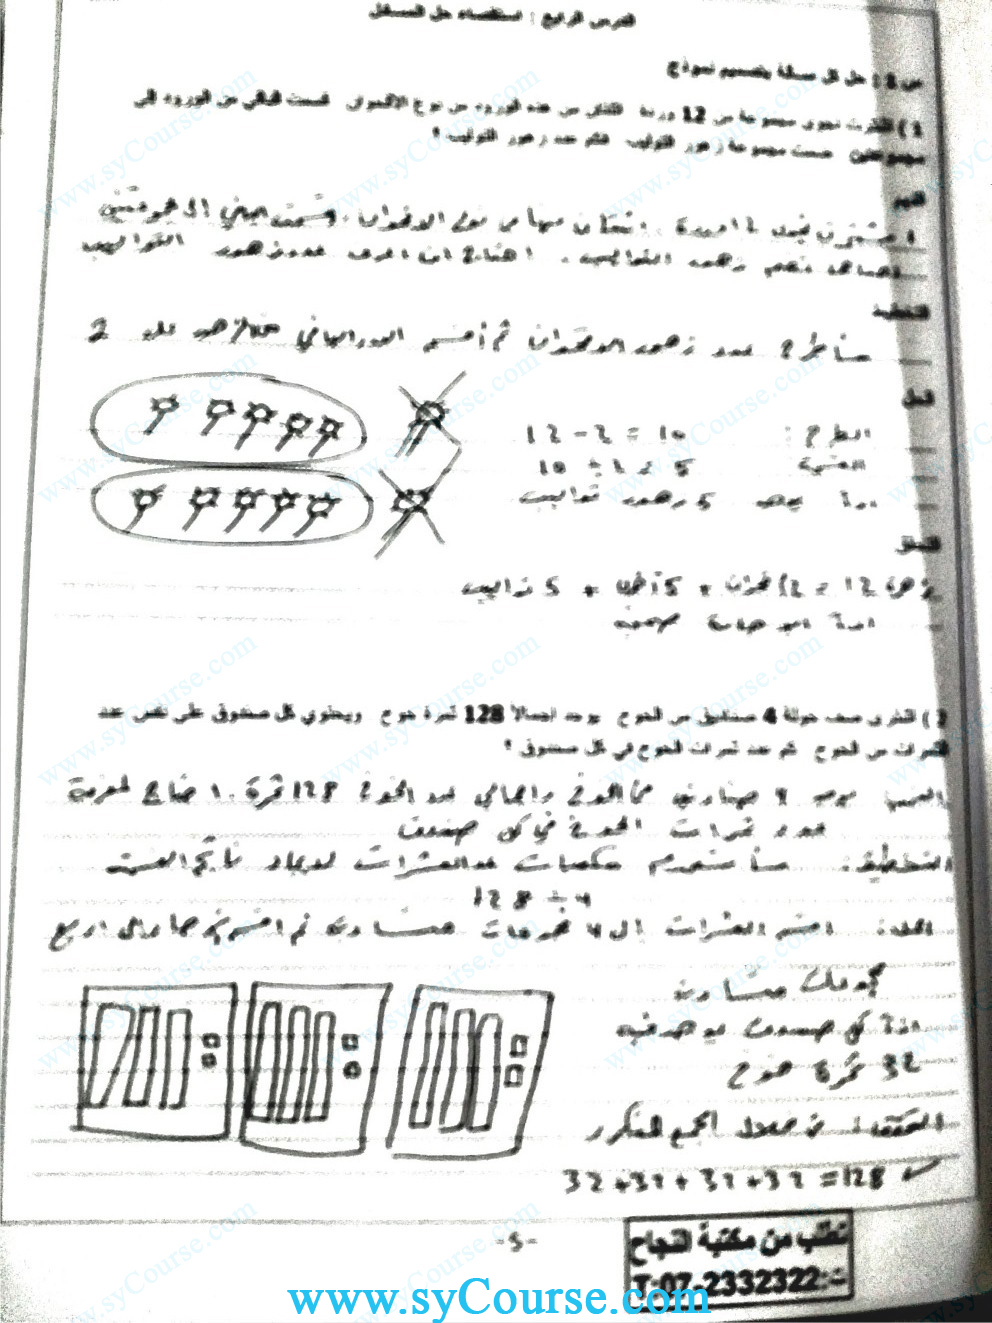 الدرس الرابع : استقصاء حل المسائل
س 1 : حل كل مسألة بتصميم نموذج
1 ) اشترت نجوى مجموعة من 12 وردة من هذه الورود من نوع الأقحوان قسمت الباقي من الورود إلى
مجموعتين ضمت مجموعة زهور التوليب فكم عدد زهور التوليب ؟
الفهم
زهور التواليب . احتاج ان اعرف عدد زهور التواليب
التخطيط
سأطرح عدد زهور الاقحوان ثم أقسم على 2
الحل
الطرح : 12 - 2 = 10
القسمة 10 ÷ 2 = 5
اذا يوجد 5 زهور تواليب
التحقق
زهرة 12 = 2 اقحوان + 5 + 5 تواليب
اذا الاجابة صحيحة
2 ) اشترى صف خولة 4 صناديق من الخوخ يوجد إجمالاً 128 ثمرة خوخ ويحتوي كل صندوق على نفس عدد
الثمرات من الخوخ كم عدد ثمرات الخوخ في كل صندوق ؟
يوجد 4 صناديق من الخوخ واجمالي عدد الخوخ 128 ثمرة . احتاج لمعرفة
عدد ثمرات الخوخ في كل صندوق
التخطيط : سأستخدم مكعبات عد العشرات لايجاد ناتج القسمة
128 ÷ 4
الحل : اقسم العشرات الى 4 مجموعات متساوية ثم اقسم اربع
مجموعات متساوية
اذا كل صندوق يوجد فيه
32 ثمرة خوخ
التحقق : من خلال الجمع المتكرر
32 + 32 + 32 + 32 = 128 ✓
- 5 -
تطلب من مكتبة النجاح
T:07-2332322:ت
www.syCourse.com